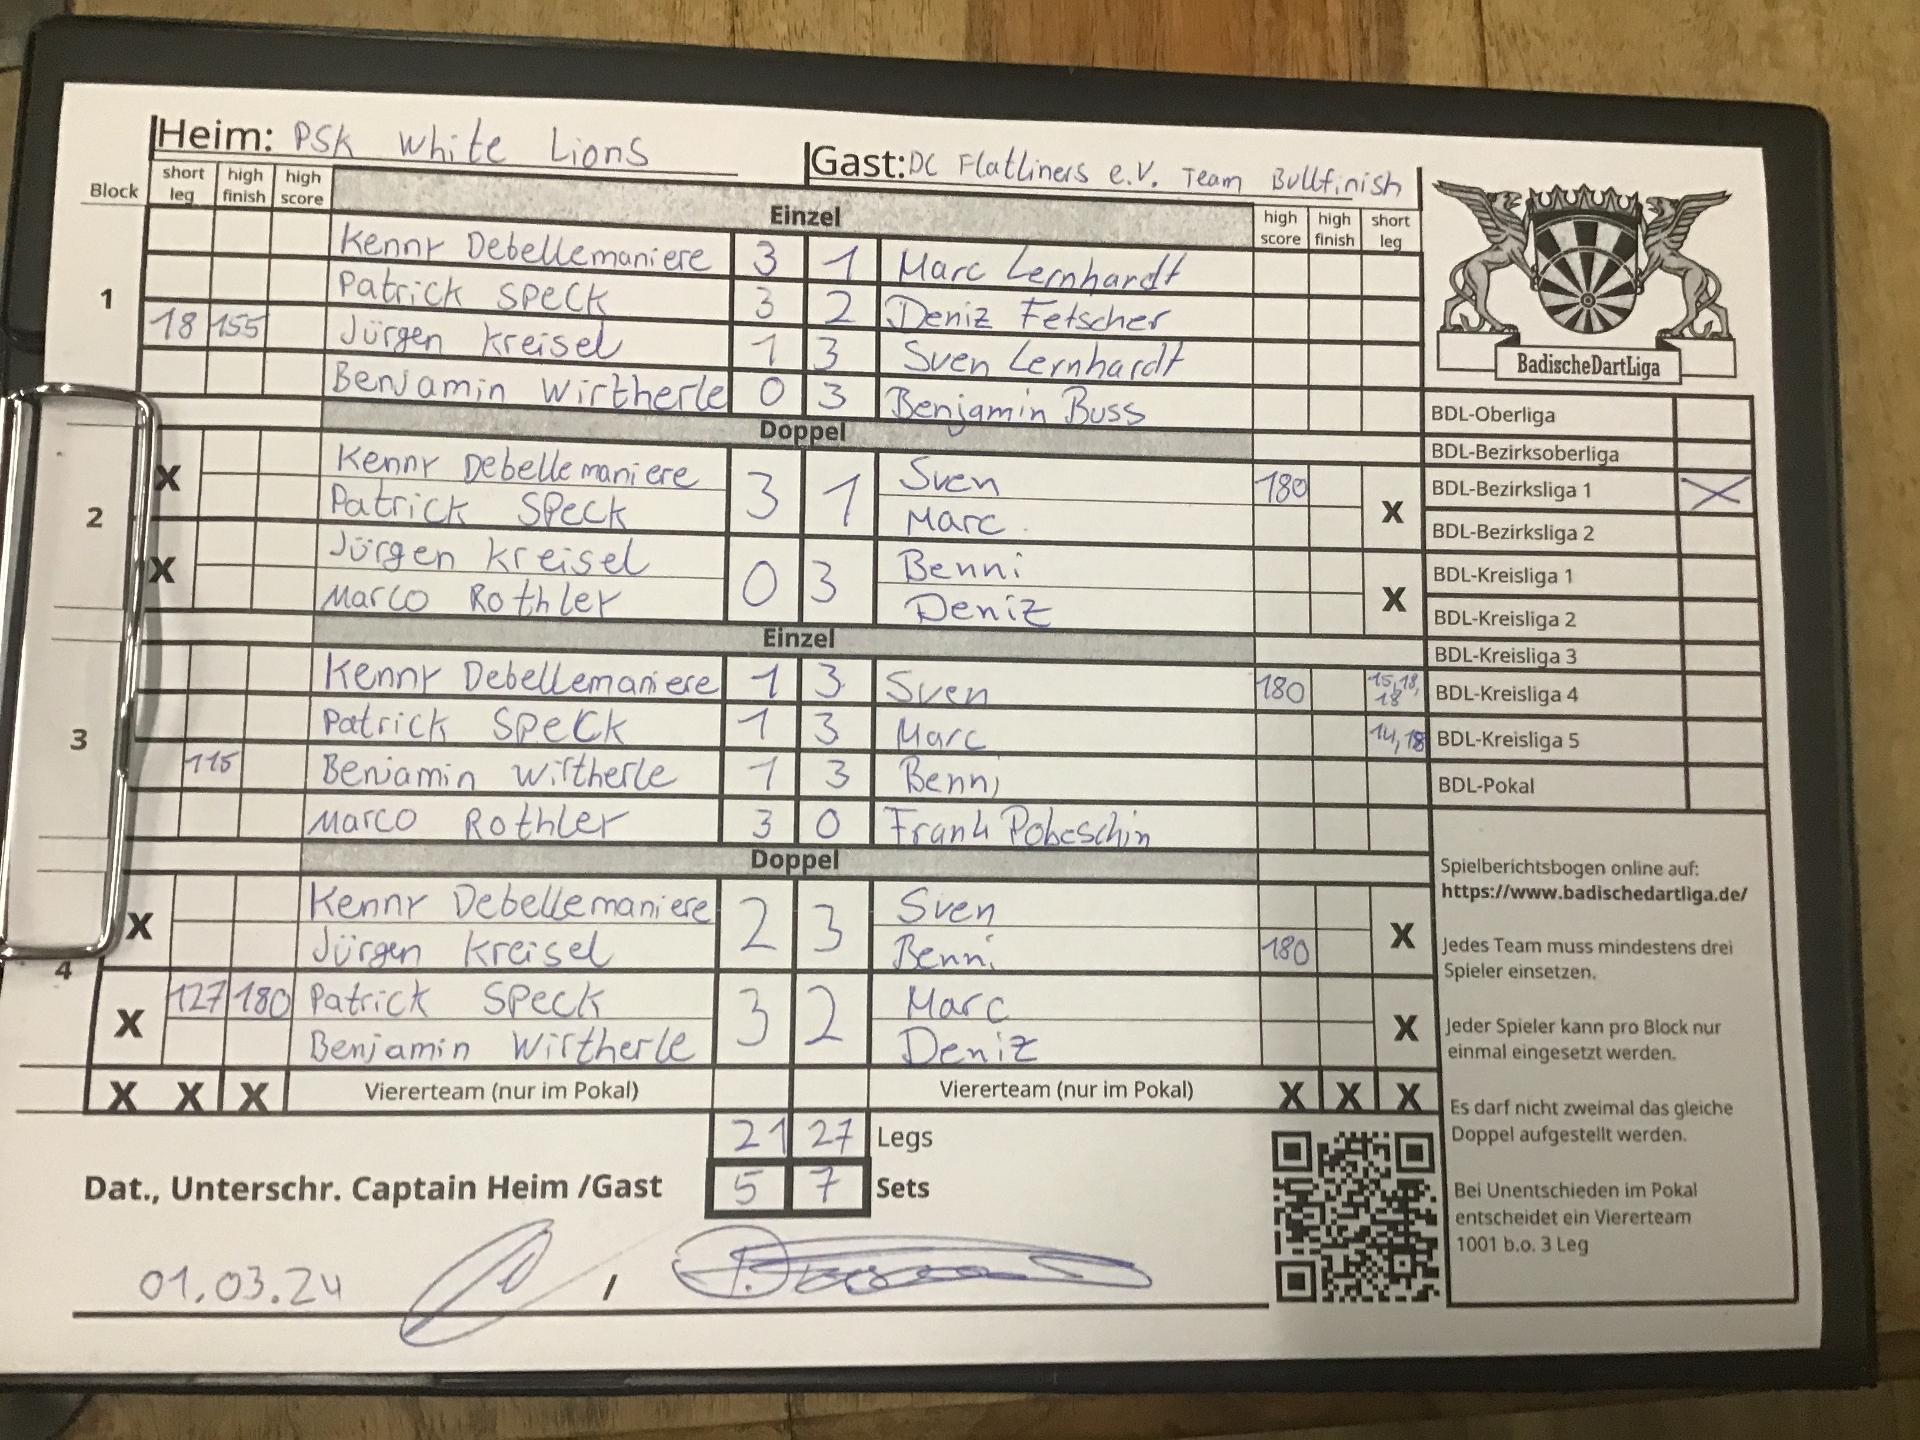 Heim: PSK White Lions Gast: DC Flatliners e.V. Team Bullfinish
Block short leg high finish high score Einzel high score high finish short leg
1
Kenny Debellemaniere 3 1 Marc Lernhardt
Patrick Speck 3 2 Deniz Fetscher
18 155 Jürgen Kreisel 1 3 Sven Lernhardt
Benjamin Wirtherle 0 3 Benjamin Buss
Doppel
2
X Kenny Debellemaniere 3 1 Sven 180 X
Patrick Speck Marc
X Jürgen Kreisel 0 3 Benni X
Marco Rothler Deniz
Einzel
3
Kenny Debellemaniere 1 3 Sven 180 15,18,18
Patrick Speck 1 3 Marc 14,18
115 Benjamin Wirtherle 1 3 Benni
Marco Rothler 3 0 Frank Pobeschin
Doppel
4
X Kenny Debellemaniere 2 3 Sven X
Jürgen Kreisel Benni 180
X 127 180 Patrick Speck 3 2 Marc X
Benjamin Wirtherle Deniz
X X X Vierertteam (nur im Pokal) Viererteam (nur im Pokal) X X X
21 27 Legs
Dat., Unterschr. Captain Heim /Gast 5 7 Sets
01.03.24 /
BadischeDartLiga
BDL-Oberliga
BDL-Bezirksoberliga
BDL-Bezirksliga 1 X
BDL-Bezirksliga 2
BDL-Kreisliga 1
BDL-Kreisliga 2
BDL-Kreisliga 3
BDL-Kreisliga 4
BDL-Kreisliga 5
BDL-Pokal
Spielberichtsbogen online auf:
https://www.badischedartliga.de/
Jedes Team muss mindestens drei
Spieler einsetzen.
Jeder Spieler kann pro Block nur
einmal eingesetzt werden.
Es darf nicht zweimal das gleiche
Doppel aufgestellt werden.
Bei Unentschieden im Pokal
entscheidet ein Viererteam
1001 b.o. 3 Leg